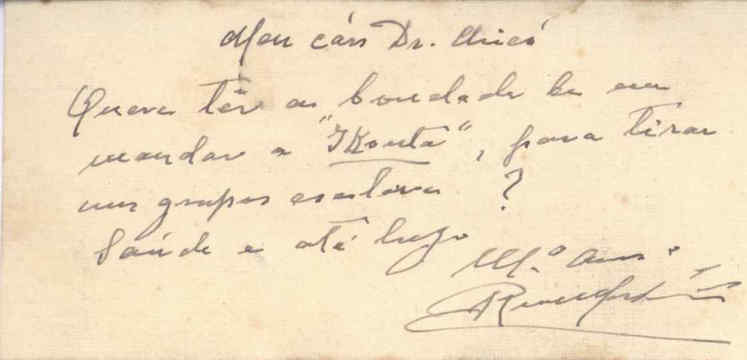 Meu cáro Dr.
Quera têr a bondade de me
mandar a "Ikonta", para tirar
uns grupos escolares ?
Saúde e até logo
M.º Am.º